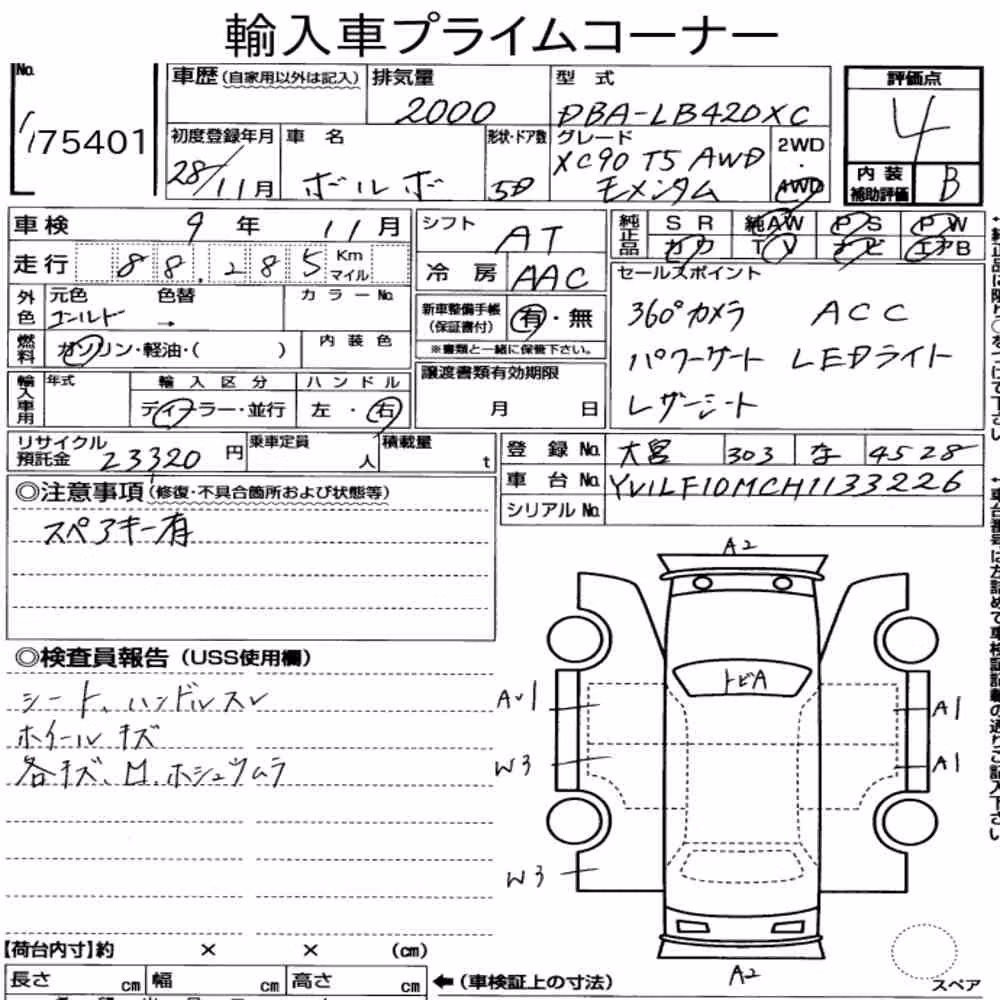 輸入車プライムコーナー
No. 75401
車歴(自家用以外は記入) 排気量 2000 型式 DBA-LB420XC
評価点 4
初度登録年月 28/11月 車名 ボルボ 形状・ドア数 5D グレード XC90 T5 AWD モメンタム 2WD・AWD
内装補助評価 B
車検 9年 11月
シフト AT
純正品 SR 純AW PS PW
カワ TV ナビ エアB
走行 88,285 Km マイル
冷房 AAC
セールスポイント
360°カメラ ACC
パワーゲート LEDライト
レザーシート
外色 元色 色替 カラーNo.
ゴールド →
新車整備手帳(保証書付) 有・無
※書類と一緒に保管下さい。
燃料 ガソリン・軽油・( ) 内装色
譲渡書類有効期限
月 日
輸入車用 年式 輸入区分 ハンドル
ディーラー・並行 左・右
リサイクル預託金 23320円 乗車定員 人 積載量 t
登録No. 大宮 303 な 4528
車台No. YV1LF10MCH1133226
シリアルNo.
◎注意事項(修復・不具合箇所および状態等)
スペアキー有
◎検査員報告(USS使用欄)
シート、ハンドルスレ
ホイールキズ
各キズ、凹、ホシュウムラ
A2
トビA
A1
A1
W3
A1
W3
A2
スペア
【荷台内寸】約 × × (cm)
長さ cm 幅 cm 高さ cm ←(車検証上の寸法)